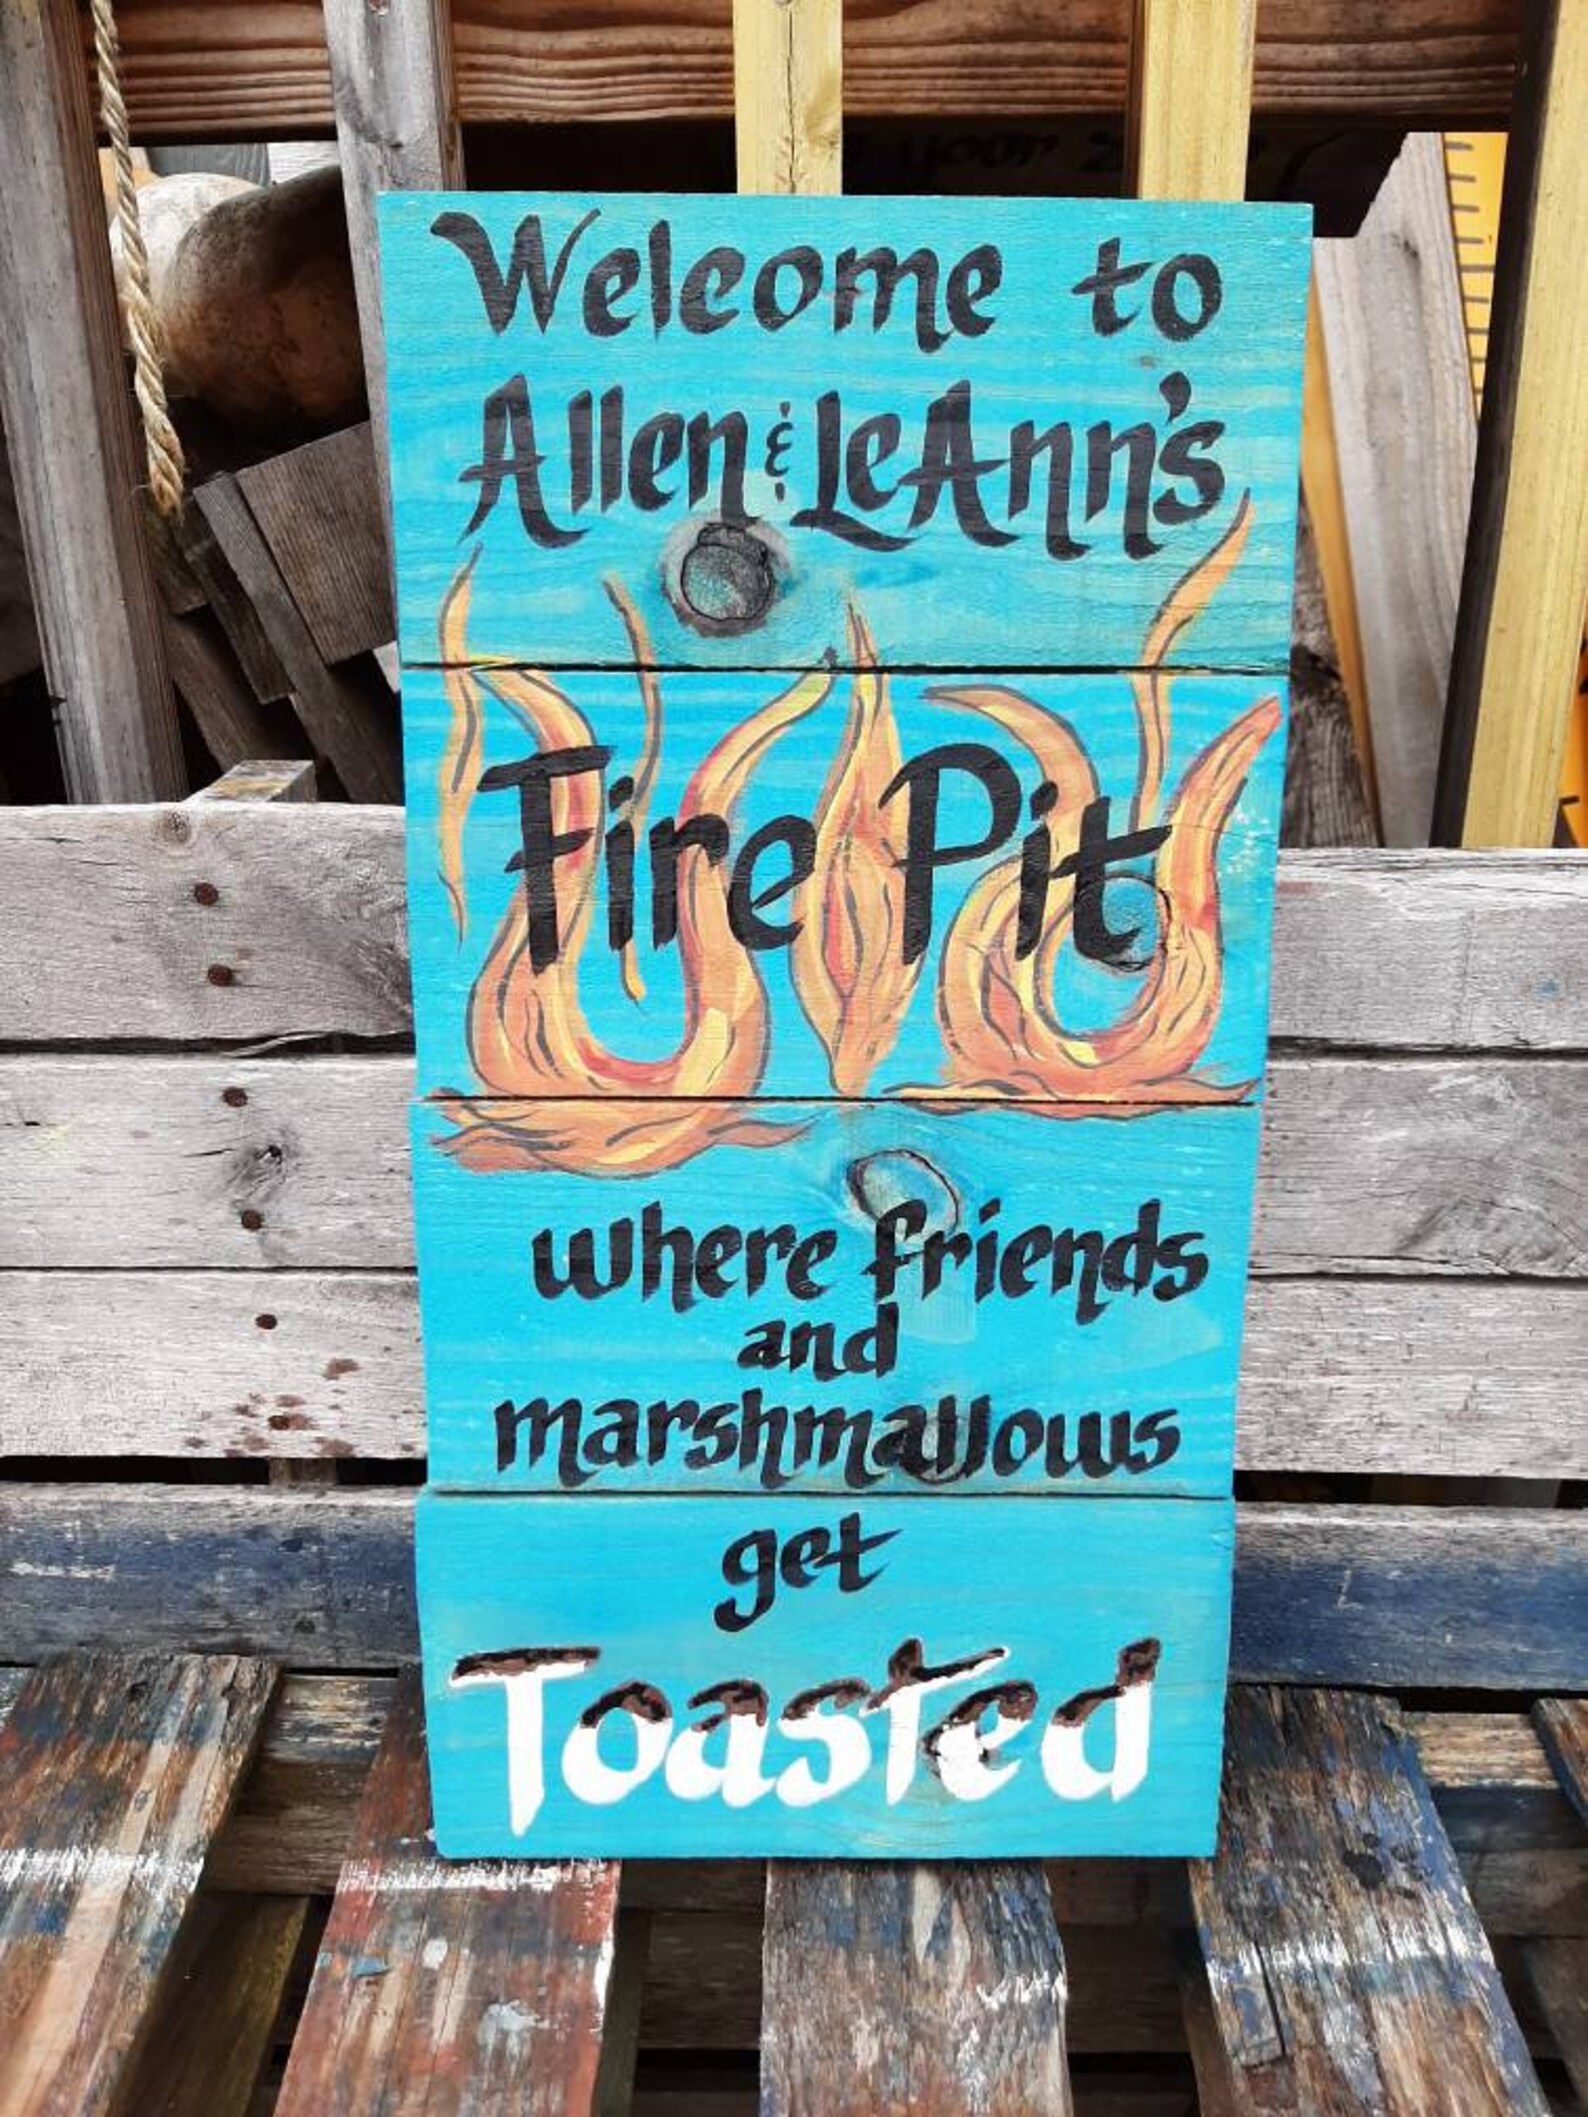 your
Welcome to
Allen & LeAnn's
Fire Pit
where friends
and
marshmallows
get
Toasted